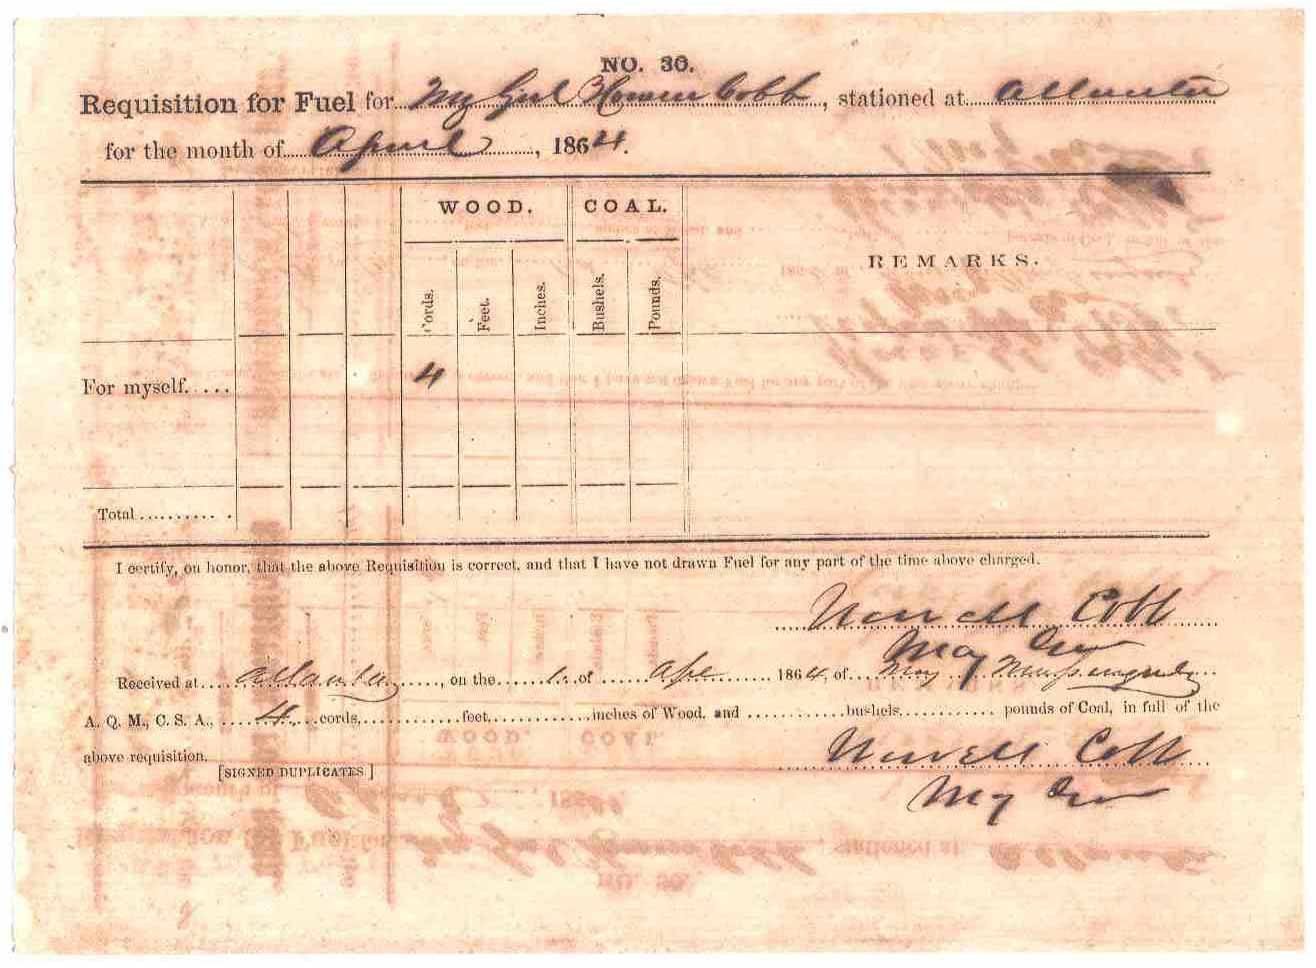 NO. 30.
Requisition for Fuel for My Genl Howell Cobb, stationed at Atlanta
for the month of April, 1864.
WOOD. COAL. REMARKS.
Cords. Feet. Inches. Bushels. Pounds.
For myself..... 4
Total..........
I certify, on honor, that the above Requisition is correct, and that I have not drawn Fuel for any part of the time above charged.
Howell Cobb
Maj Gen
Received at Atlanta, on the 1. of Apl 1864, of Maj
A. Q. M., C. S. A., 4 cords, feet, inches of Wood, and bushels, pounds of Coal, in full of the
above requisition.
[SIGNED DUPLICATES]
Howell Cobb
Maj Gen